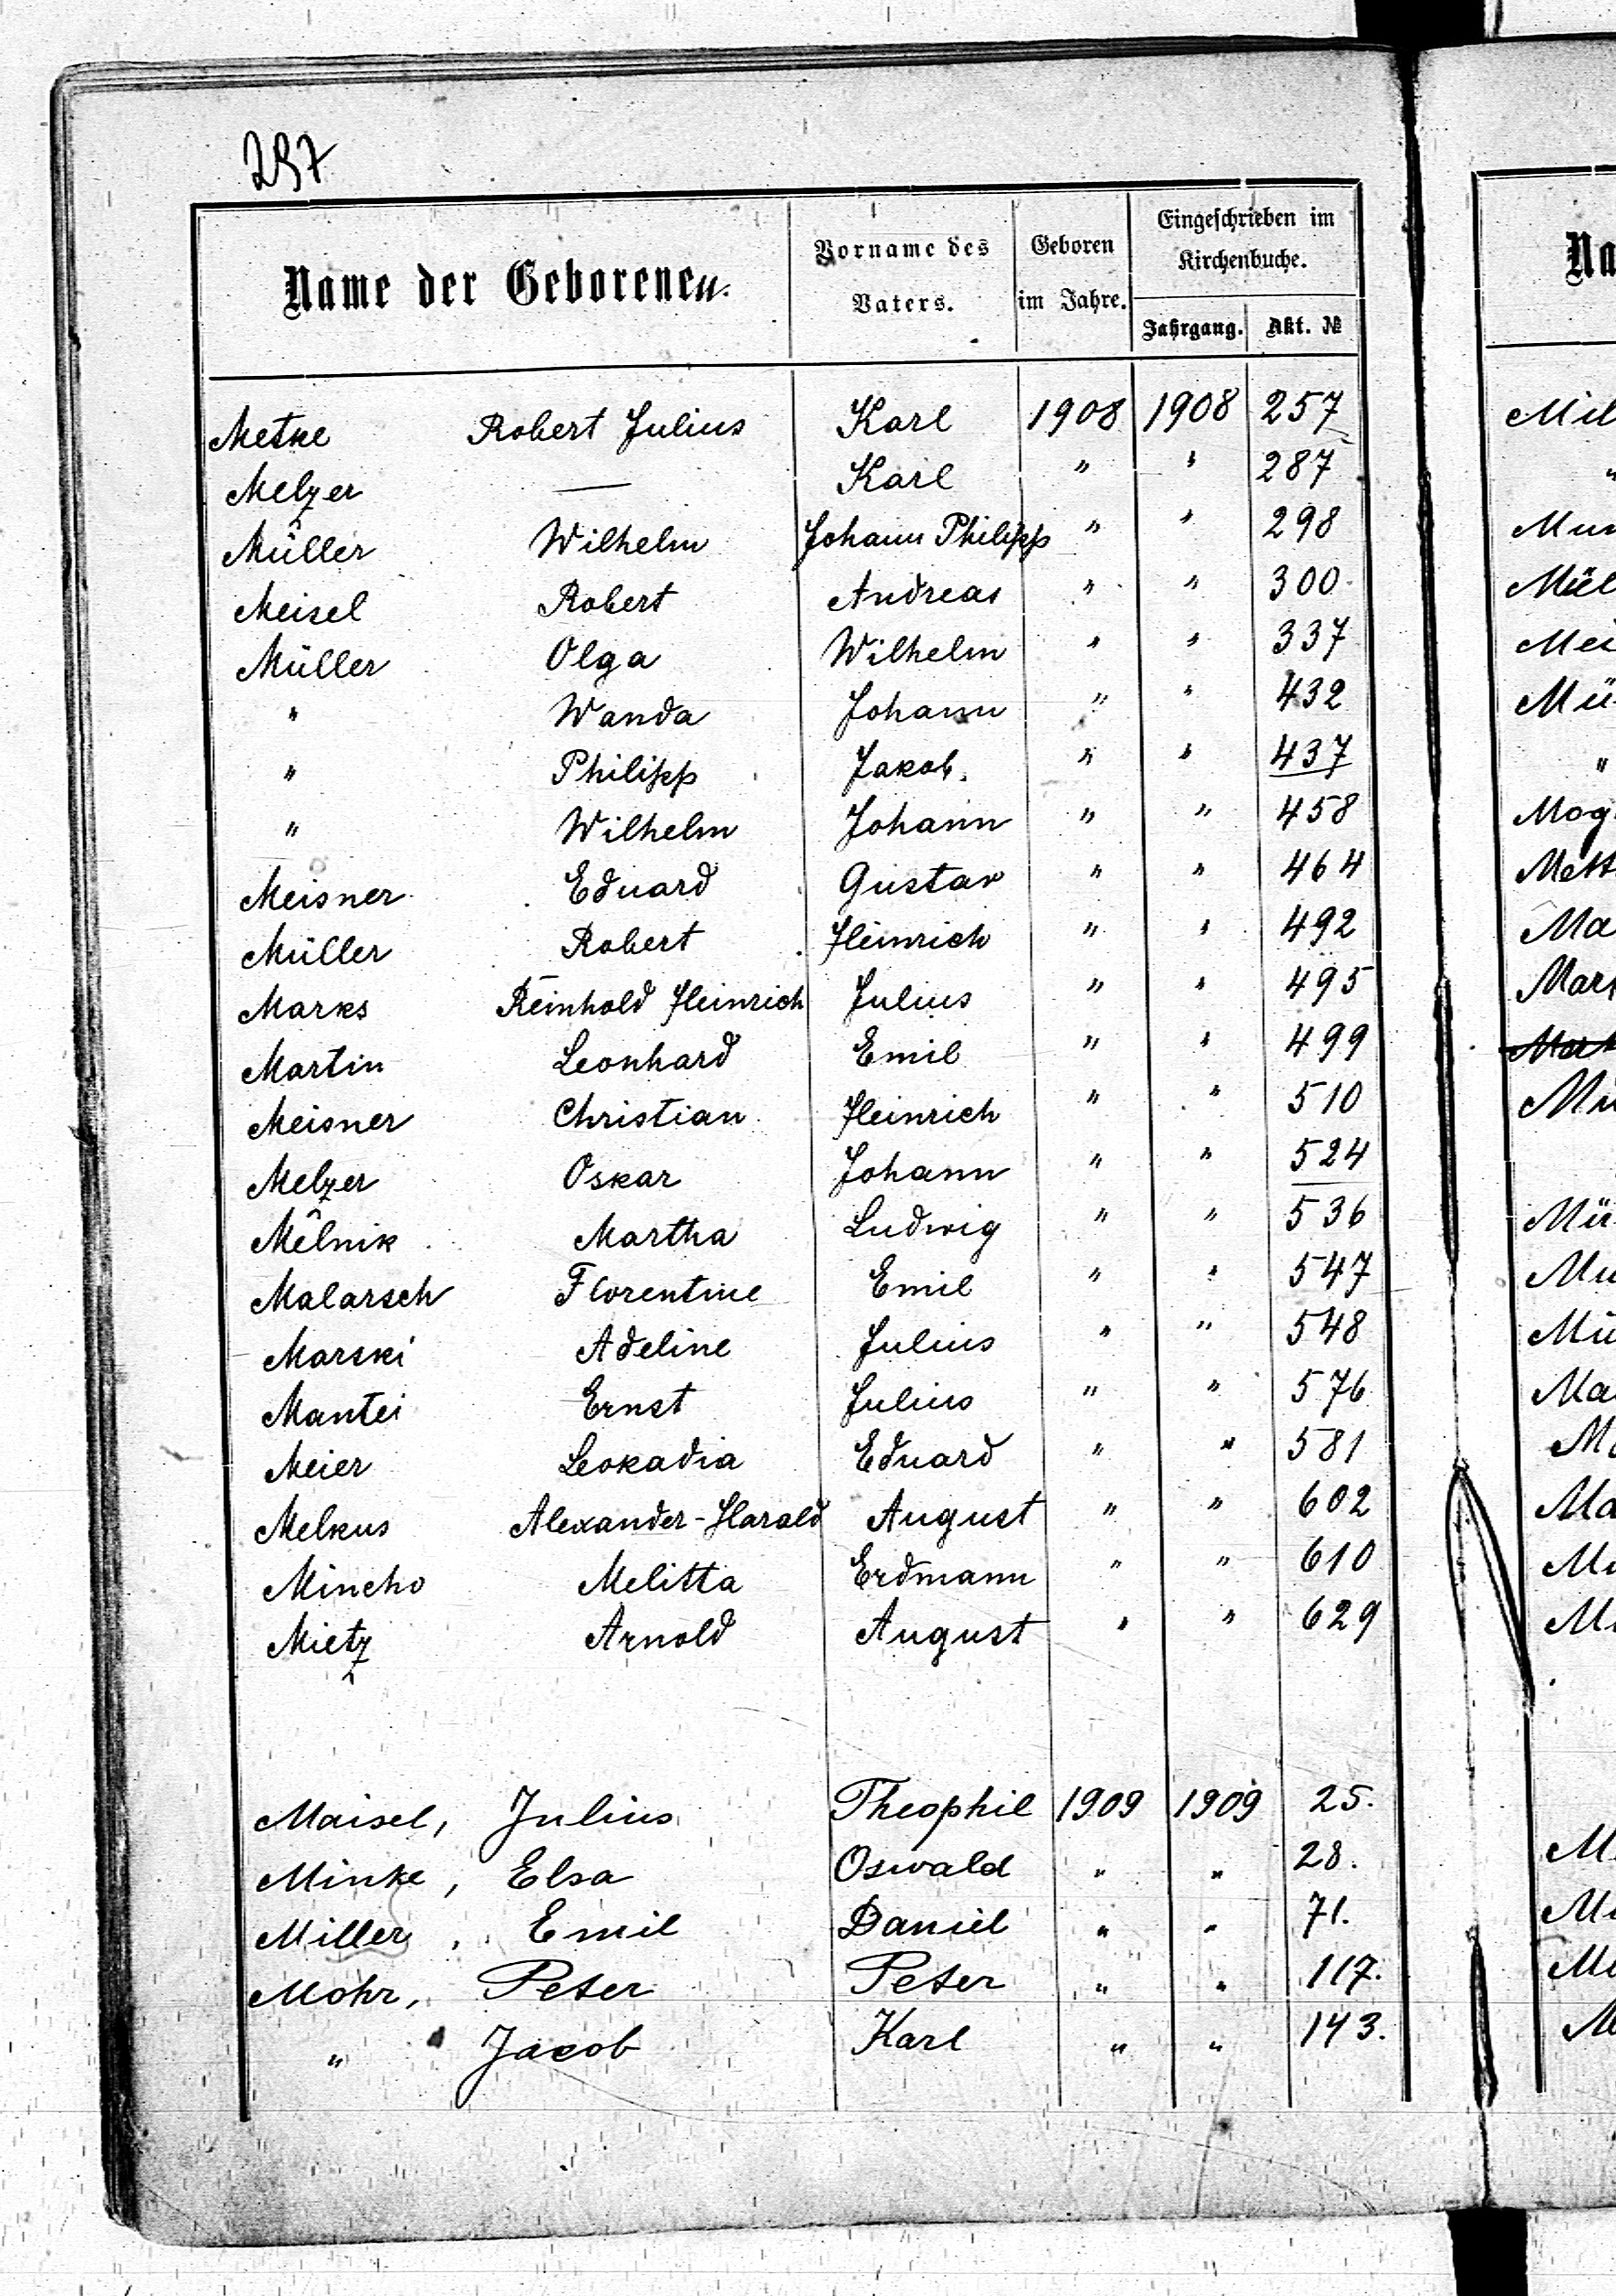 297
Name der Geborenen. Vorname des Vaters. Geboren im Jahre. Eingeschrieben im Kirchenbuche. Jahrgang. Akt. №
Metke Robert Julius Karl 1908 1908 257
Melzer — Karl " " 287
Müller Wilhelm Johann Philipp " " 298
Meisel Robert Andreas " " 300
Müller Olga Wilhelm " " 337
" Wanda Johann " " 432
" Philipp Jakob. " " 437
" Wilhelm Johann " " 458
Meisner Eduard Gustav " " 464
Müller Robert Heinrich " " 492
Marks Reinhold Heinrich Julius " " 495
Martin Leonhard Emil " " 499
Meisner Christian Heinrich " " 510
Melzer Oskar Johann " " 524
Melnik Martha Ludwig " " 536
Malarsch Florentine Emil " " 547
Marski Adeline Julius " " 548
Mantei Ernst Julius " " 576
Meier Leokadia Eduard " " 581
Melkus Alexander-Harald August " " 602
Mincho Melitta Erdmann " " 610
Mietz Arnold August " " 629
Maisel, Julius Theophil 1909 1909 25.
Minke, Elsa Oswald " " 28.
Miller, Emil Daniel " " 71.
Mohr, Peter Peter " " 117.
" Jacob Karl " " 143.